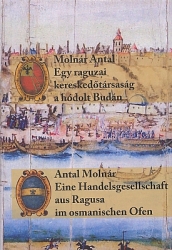 Molnár Antal
Egy raguzai
kereskedőtársaság
a hódolt Budán
Antal Molnár
Eine Handelsgesellschaft
aus Ragusa
im osmanischen Ofen